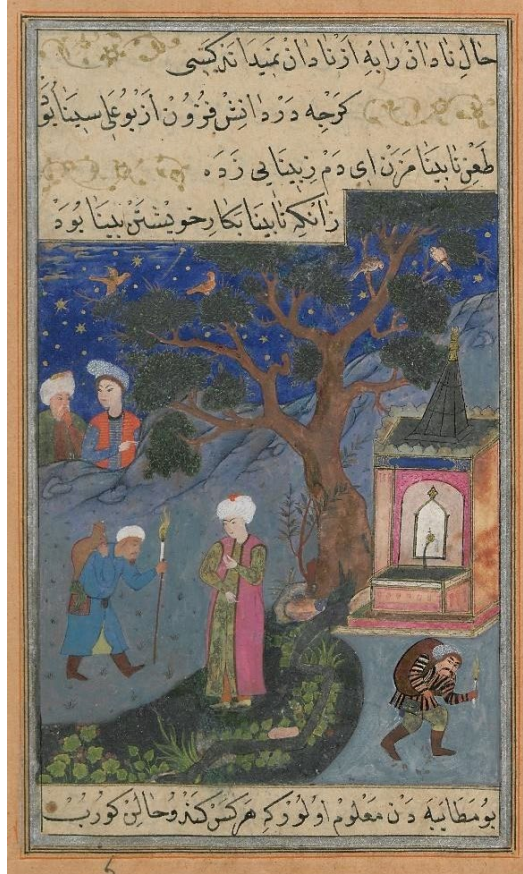 حال نادان را به از نادان نمیداند کسی
کرچه در دانش فزون از بوعلی سینا بود
طعن نابینا مزن ای دم ز بینایی زده
زانکه نابینا بکار خویشتن بینا بود
بو مطایبه دن معلوم اولور که هر کس کندو حالن کورب